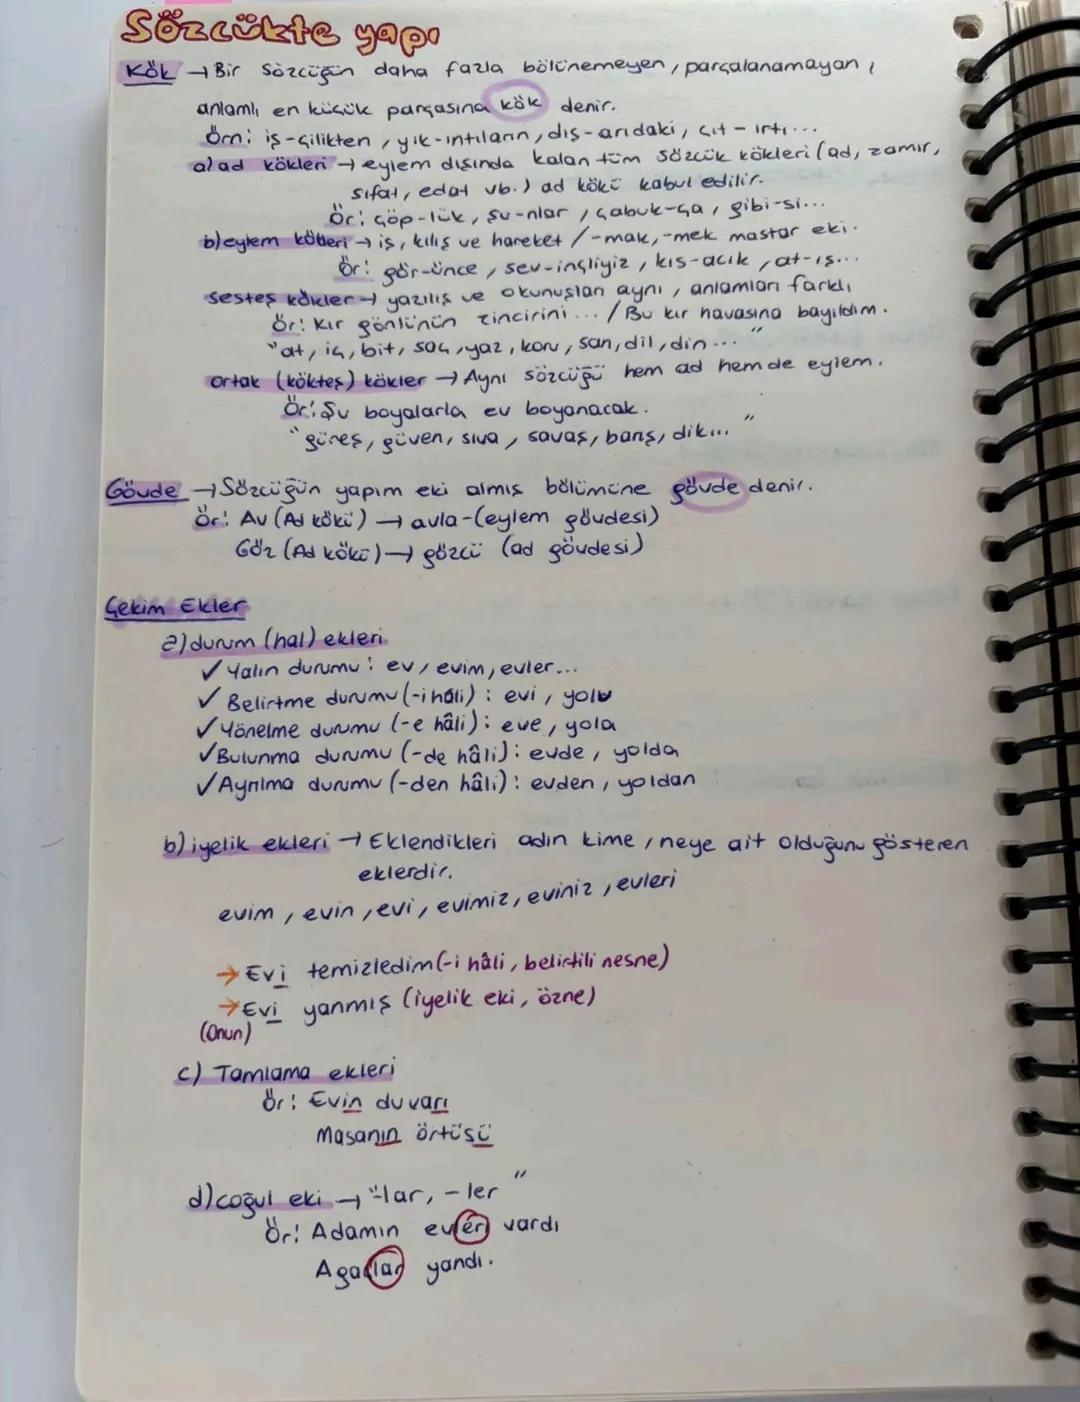 Sözcükte yapı
Kök → Bir sözcüğün daha fazla bölünemeyen, parçalanamayan,
anlamlı en küçük parçasına kök denir.
Örn: iş-çilikten, yık-ıntıların, dış-arıdaki, çıt-ırtı...
a) ad kökleri → eylem dışında kalan tüm sözcük kökleri (ad, zamir,
sıfat, edat vb.) ad kökü kabul edilir.
Ör: çöp-lük, şu-nlar, çabuk-ça, gibi-si...
b) eylem kökleri → iş, kılış ve hareket / -mak, -mek mastar eki.
Ör: gör-ünce, sev-inçliyiz, kıs-acık, at-ış...
sesteş kökler → yazılış ve okunuşları aynı, anlamları farklı
Ör: Kır gönlünün zincirini... / Bu kır havasına bayıldım.
"at, iç, bit, saç, yaz, koru, san, dil, din..."
ortak (kökteş) kökler → Aynı sözcüğü hem ad hem de eylem.
Ör: Şu boyalarla ev boyanacak.
"güreş, güven, sıva, savaş, barış, dik..."
Gövde → Sözcüğün yapım eki almış bölümüne gövde denir.
Ör: Av (Ad kökü) → avla-(eylem gövdesi)
Göz (Ad kökü) → gözcü (ad gövdesi)
Çekim Ekler
a) durum (hal) ekleri
✓ Yalın durumu: ev, evim, evler...
✓ Belirtme durumu (-i hâli): evi, yolu
✓ Yönelme durumu (-e hâli): eve, yola
✓ Bulunma durumu (-de hâli): evde, yolda
✓ Ayrılma durumu (-den hâli): evden, yoldan
b) iyelik ekleri → Eklendikleri adın kime, neye ait olduğunu gösteren
eklerdir.
evim, evin, evi, evimiz, eviniz, evleri
→ Evi temizledim (-i hâli, belirtili nesne)
→ Evi yanmış (iyelik eki, özne)
(Onun)
c) Tamlama ekleri
Ör: Evin duvarı
Masanın örtüsü
d) çoğul eki → "-lar, -ler"
Ör: Adamın evleri vardı
Ağaçlar yandı.